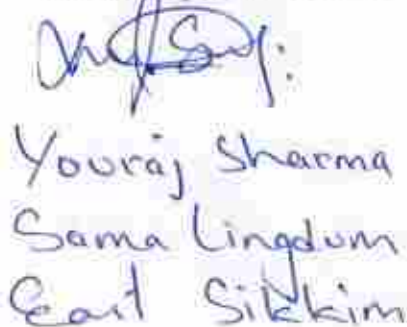 Youraj Sharma
Sama Lingdum
East Sikkim